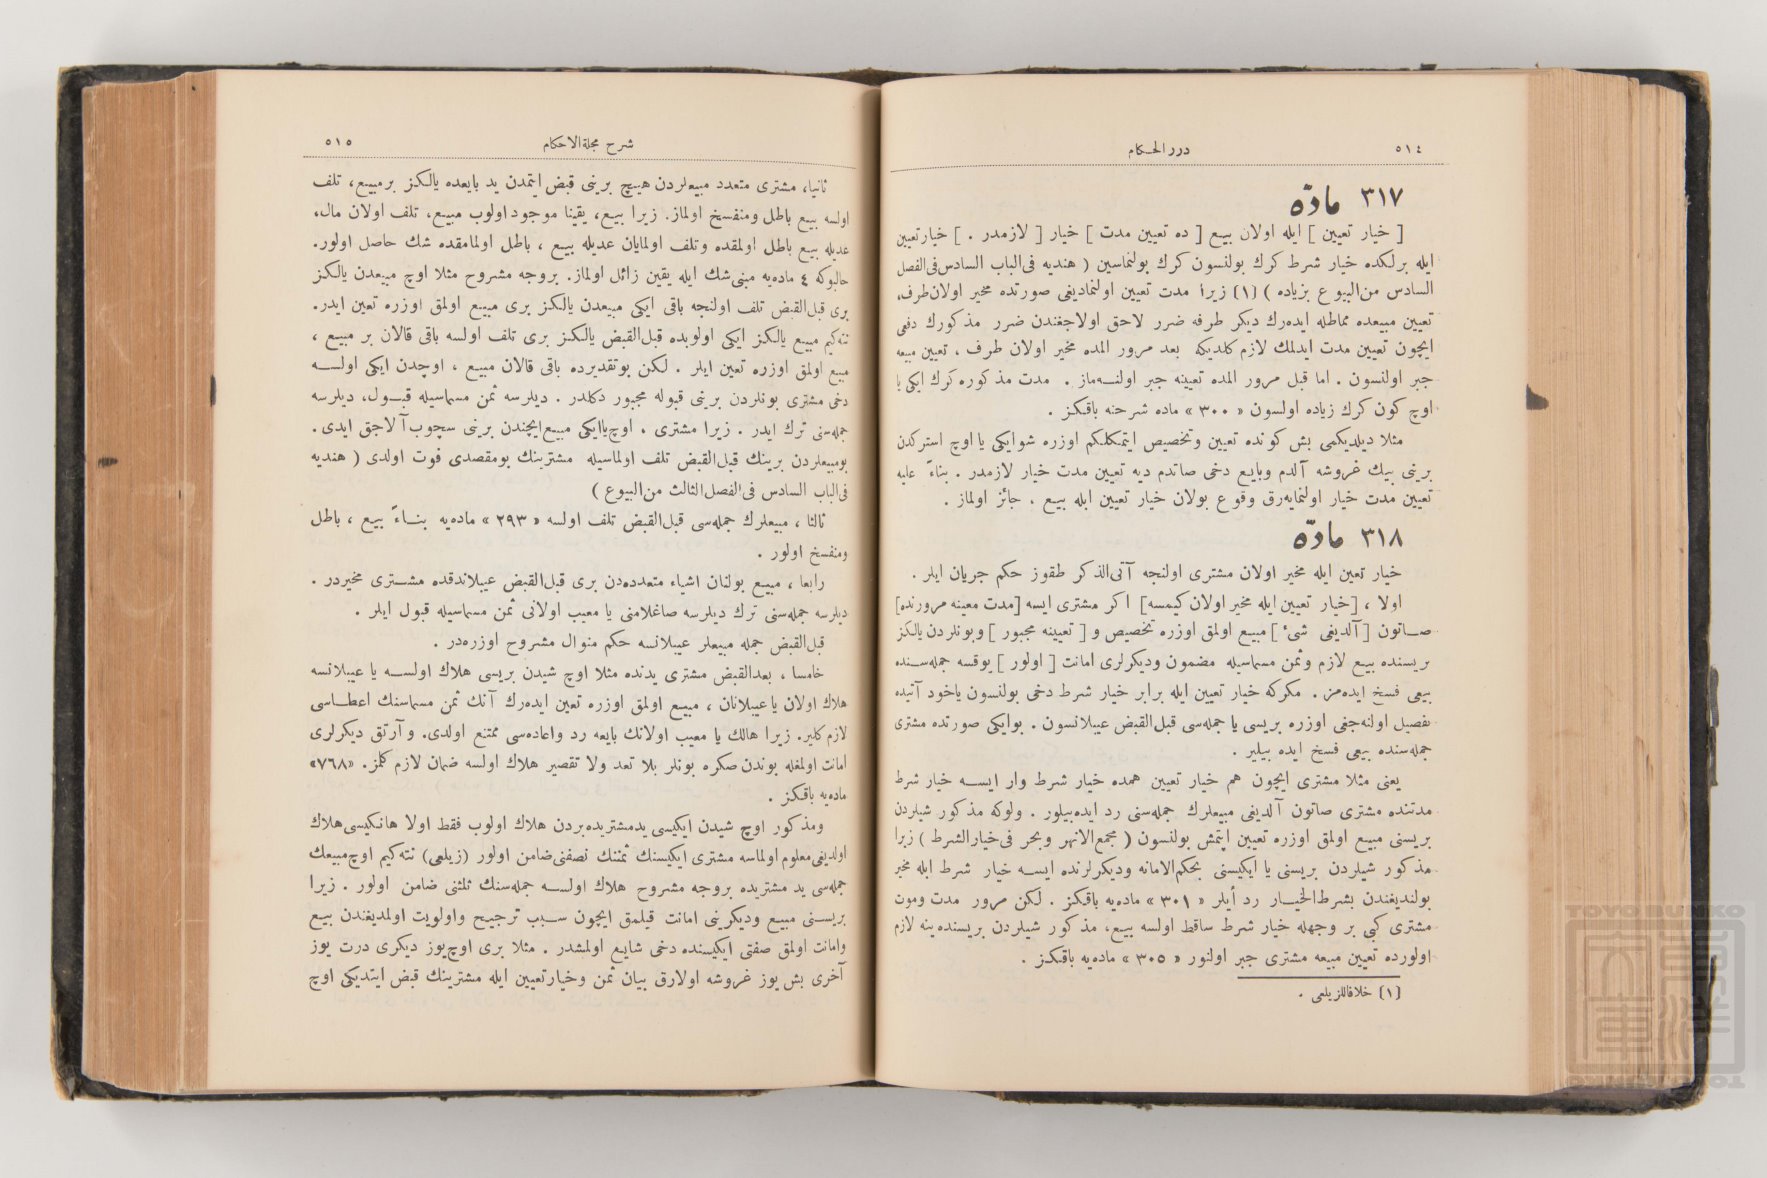 ٥١٤
درر الحكام
٣١٧ مادّه
[ خيار تعيين ] ايله اولان بيع [ ده تعيين مدت ] خيار [ لازمدر . ] خيار تعيين
ايله برلكده خيار شرط كرك بولنسون كرك بولنماسين ( هنديه فى الباب السادس فى الفصل
السادس من البيوع بزياده ) (١) زيرا مدت تعيين اولنماديغى صورتده مخير اولان طرف،
تعيين مبيعده مماطله ايده‌رك ديكر طرفه ضرر لاحق اولاجغندن ضرر مذكورك دفعى
ايچون تعيين مدت ايدلمك لازم كلديكه بعد مرور المده مخير اولان طرف ، تعيين مبيعه
جبر اولنسون . اما قبل مرور المده تعيينه جبر اولنه‌ماز . مدت مذكوره كرك ايكى يا
اوچ كون كرك زياده اولسون « ٣٠٠ » ماده شرحنه باقكز .
مثلا ديلديكمى بش كونده تعيين وتخصيص ايتمكلكم اوزره شو ايكى يا اوچ استركدن
برينى بيك غروشه آلدم وبايع دخى صاتدم ديه تعيين مدت خيار لازمدر . بناءً عليه
تعيين مدت خيار اولنمايه‌رق وقوع بولان خيار تعيين ايله بيع ، جائز اولماز .
٣١٨ مادّه
خيار تعين ايله مخير اولان مشترى اولنجه آتى الذكر طقوز حكم جريان ايلر .
اولا ، [خيار تعيين ايله مخير اولان كيمسه] اكر مشترى ايسه [مدت معينه مرورنده]
صاتون [آلديغى شىء] مبيع اولمق اوزره تخصيص و [ تعيينه مجبور ] وبونلردن يالكز
بريسنده بيع لازم وثمن مسماسيله مضمون وديكرلرى امانت [ اولور ] يوقسه جمله‌سنده
بيعى فسخ ايده‌مز . مكركه خيار تعيين ايله برابر خيار شرط دخى بولنسون ياخود آتيده
تفصيل اولنه‌جغى اوزره بريسى يا جمله‌سى قبل القبض عيبلانسون . بو ايكى صورتده مشترى
جمله‌سنده بيعى فسخ ايده بيلير .
يعنى مثلا مشترى ايچون هم خيار تعيين همده خيار شرط وار ايسه خيار شرط
مدتنده مشترى صاتون آلديغى مبيعلرك جمله‌سنى رد ايده‌بيلور . ولوكه مذكور شيلردن
بريسنى مبيع اولمق اوزره تعيين ايتمش بولنسون ( مجمع الانهر وبحر فى خيار الشرط ) زيرا
مذكور شيلردن بريسنى يا ايكيسنى بحكم الامانه وديكرلرنده ايسه خيار شرط ايله مخير
بولنديغندن بشرط الخيار رد أيلر « ٣٠١ » ماده‌يه باقكز . لكن مرور مدت وموت
مشترى كبى بر وجهله خيار شرط ساقط اولسه بيع، مذكور شيلردن بريسنده ينه لازم
اولورده تعيين مبيعه مشترى جبر اولنور « ٣٠٥ » ماده‌يه باقكز .
(١) خلافاللزيلعى .
شرح مجلة الاحكام
٥١٥
ثانيا، مشترى متعدد مبيعلردن هيچ برينى قبض ايتمدن يد بايعده يالكز بر مبيع، تلف
اولسه بيع باطل ومنفسخ اولماز. زيرا بيع، يقينا موجود اولوب مبيع، تلف اولان مال،
عديله بيع باطل اولمقده وتلف اولمايان عديله بيع ، باطل اولمامقده شك حاصل اولور.
حالبوكه ٤ ماده‌يه مبنى شك ايله يقين زائل اولماز. بروجه مشروح مثلا اوچ مبيعدن يالكز
برى قبل القبض تلف اولنجه باقى ايكى مبيعدن يالكز برى مبيع اولمق اوزره تعين ايدر.
نته‌كيم مبيع يالكز ايكى اولوبده قبل القبض يالكز برى تلف اولسه باقى قالان بر مبيع ،
مبيع اولمق اوزره تعين ايلر . لكن بوتقديرده باقى قالان مبيع ، اوچدن ايكى اولسه
دخى مشترى بونلردن برينى قبوله مجبور دكلدر . ديلرسه ثمن مسماسيله قبول، ديلرسه
جمله‌سنى ترك ايدر . زيرا مشترى ، اوچ يا ايكى مبيع ايچندن برينى سچوب آلاجق ايدى.
بومبيعلردن برينك قبل القبض تلف اولماسيله مشترينك بومقصدى فوت اولدى ( هنديه
فى الباب السادس فى الفصل الثالث من البيوع )
ثالثا ، مبيعلرك جمله‌سى قبل القبض تلف اولسه « ٢٩٣ » ماده‌يه بناءً بيع ، باطل
ومنفسخ اولور .
رابعا ، مبيع بولنان اشياء متعدده‌دن برى قبل القبض عيبلاندقده مشترى مخيردر .
ديلرسه جمله‌سنى ترك ديلرسه صاغلامنى يا معيب اولانى ثمن مسماسيله قبول ايلر .
قبل القبض جمله مبيعلر عيبلانسه حكم منوال مشروح اوزره‌در .
خامسا ، بعد القبض مشترى يدنده مثلا اوچ شيدن بريسى هلاك اولسه يا عيبلانسه
هلاك اولان يا عيبلانان ، مبيع اولمق اوزره تعين ايده‌رك آنك ثمن مسماسنك اعطاسى
لازم كلير. زيرا هالك يا معيب اولانك بايعه رد واعاده‌سى ممتنع اولدى. و آرتق ديكرلرى
امانت اولمغله بوندن صكره بونلر بلا تعد ولا تقصير هلاك اولسه ضمان لازم كلمز. «٧٦٨»
ماده‌يه باقكز .
ومذكور اوچ شيدن ايكيسى يدمشتريده بردن هلاك اولوب فقط اولا هانكيسى هلاك
اولديغى معلوم اولماسه مشترى ايكيسنك ثمننك نصفنى ضامن اولور (زيلعى) نته‌كيم اوچ مبيعك
جمله‌سى يد مشتريده بروجه مشروح هلاك اولسه جمله‌سنك ثلثنى ضامن اولور . زيرا
بريسنى مبيع وديكرينى امانت قيلمق ايچون سبب ترجيح واولويت اولمديغندن بيع
وامانت اولمق صفتى ايكيسنده دخى شايع اولمشدر . مثلا برى اوچ يوز ديكرى درت يوز
آخرى بش يوز غروشه اولارق بيان ثمن وخيار تعيين ايله مشترينك قبض ايتديكى اوچ
TOYO BUNKO